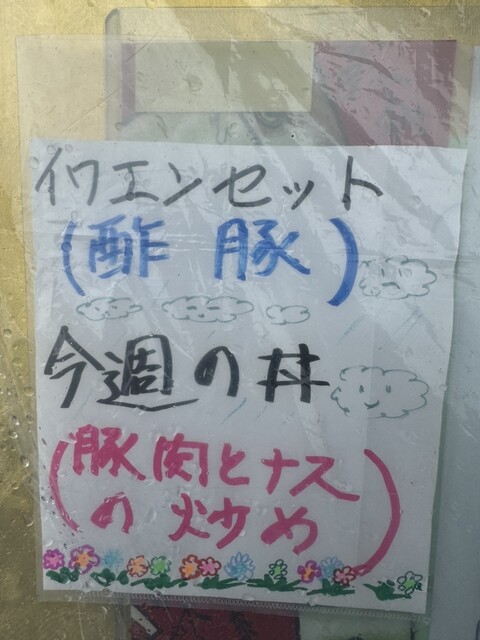 イワエンセット
(酢豚)
今週の丼
(豚肉とナス
の炒め)